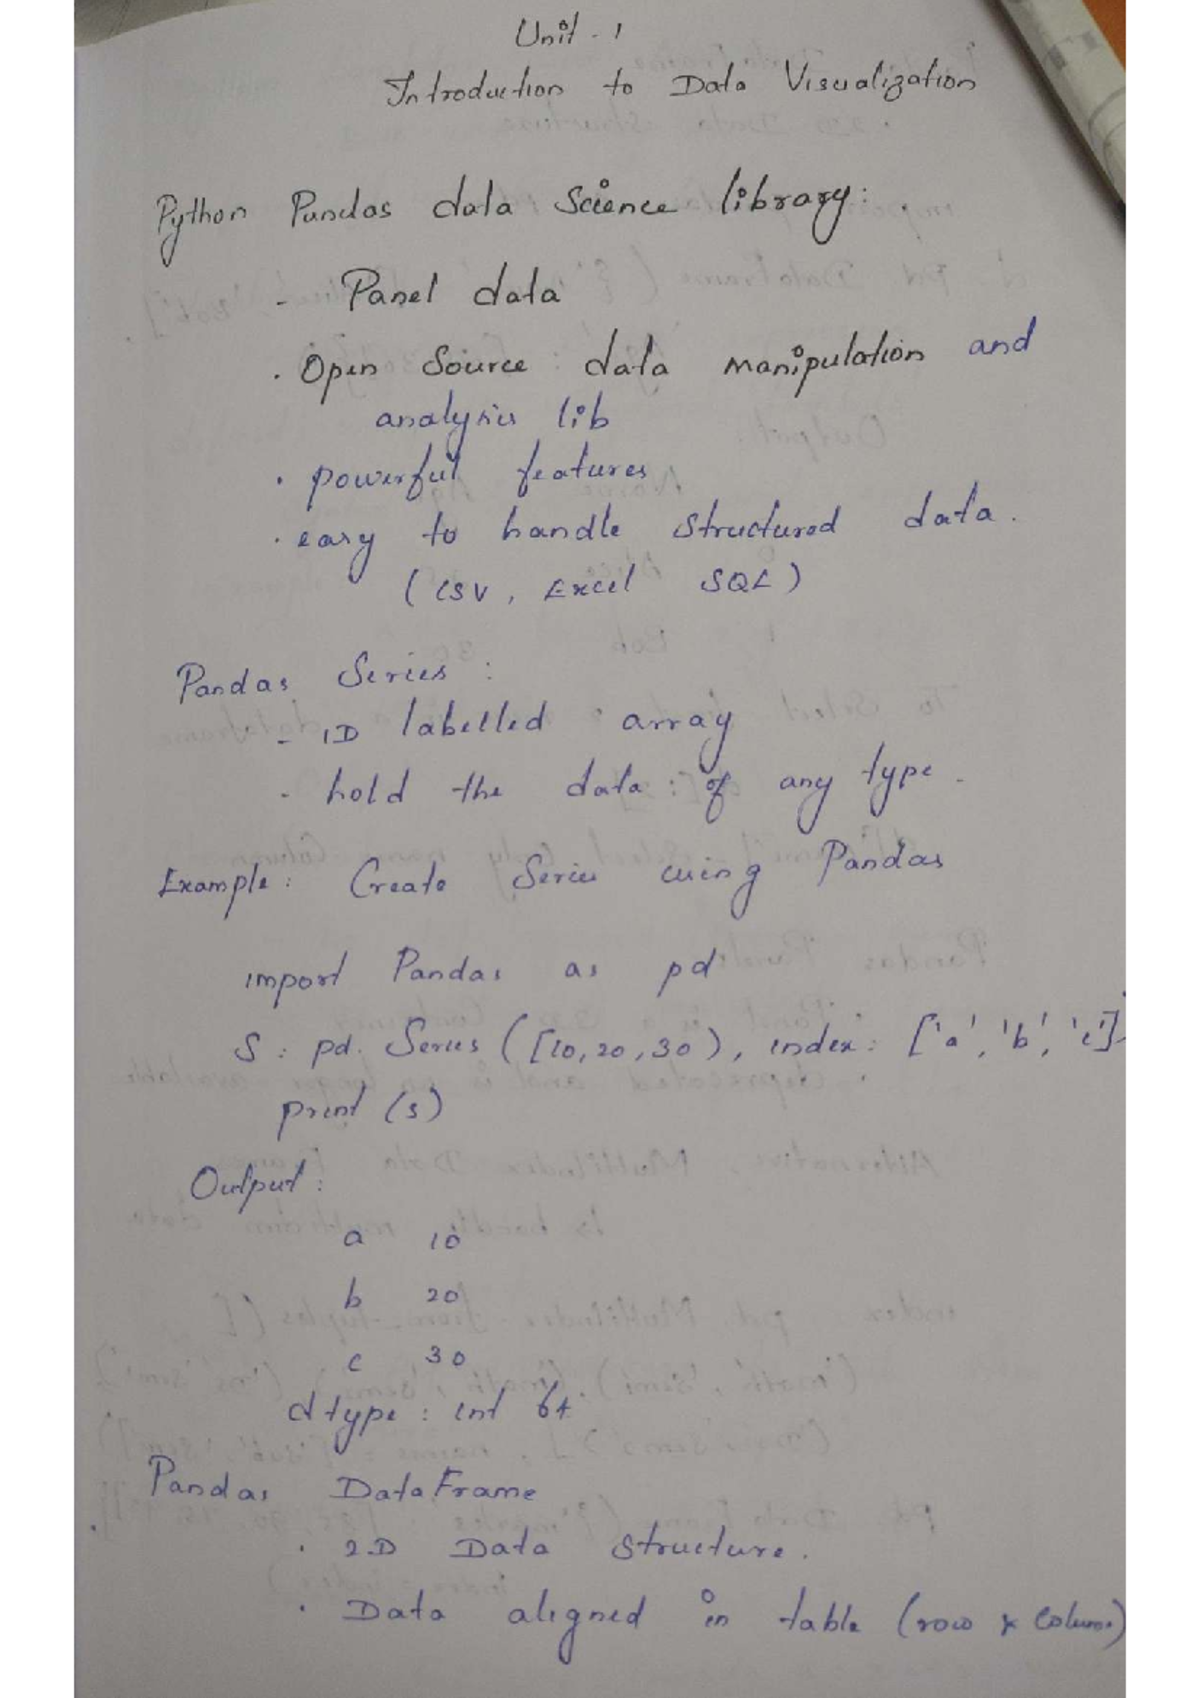 Unit - 1
Introduction to Data Visualization
Python Pandas data Science library:
- Panel data
. Open Source data manipulation and
analysis lib
. powerful features
. easy to handle structured data.
(CSV, Excel SQL)
Pandas Series :
- 1D labelled array
- hold the data : of any type.
Example: Create Series using Pandas
import Pandas as pd
S : pd. Series ([10, 20, 30), index: ['a', 'b', 'c'].
print (s)
Output :
a 10
b 20
c 30
dtype : int 64
Pandas DataFrame
. 2D Data structure.
. Data aligned in table (row x column)